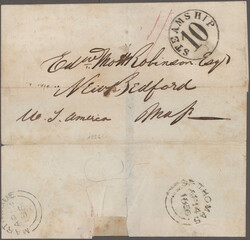 STEAMSHIP
10
Edwd Mott Robinson Esqr
New Bedford
U. S. America Mass
ST THOMAS